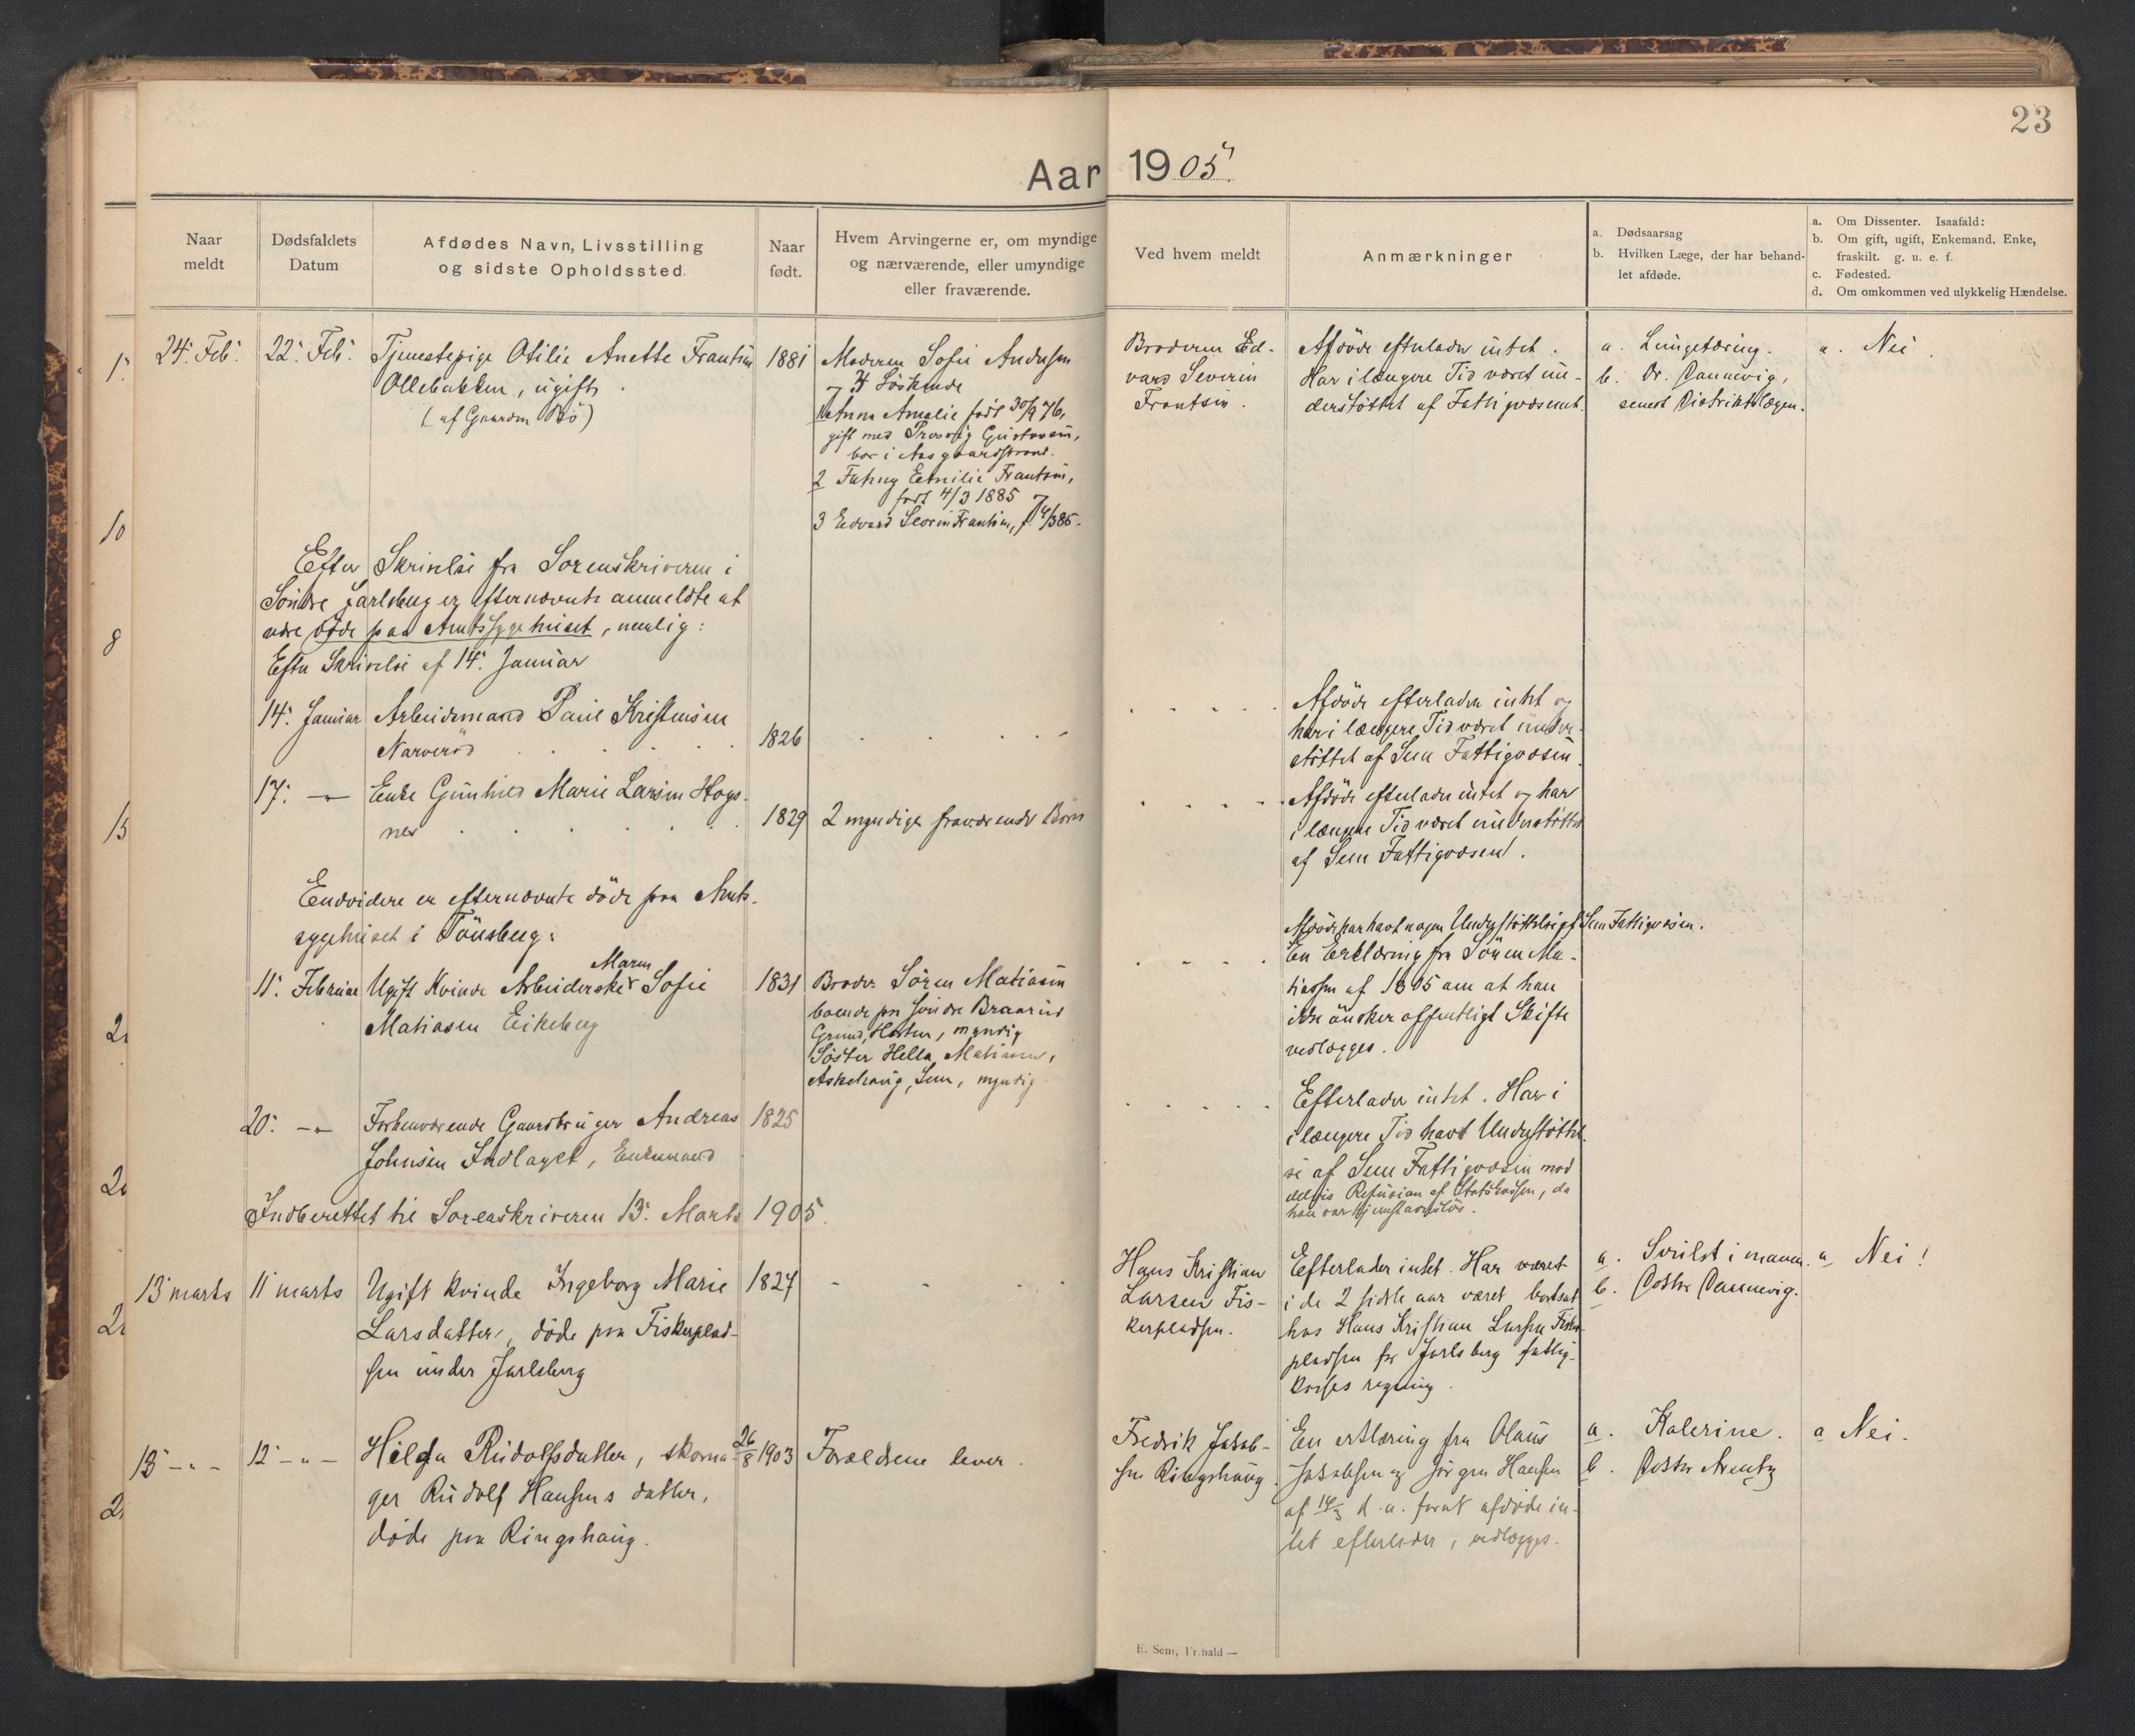 23
Aar 1905
Naar meldt
Dødsfaldets Datum
Afdødes Navn, Livsstilling og sidste Opholdssted.
Naar født.
Hvem Arvingerne er, om myndige og nærværende, eller umyndige eller fraværende.
Ved hvem meldt
Anmærkninger
a. Dødsaarsag
b. Hvilken Læge, der har behand-
let afdøde.
a. Om Dissenter. Isaafald:
b. Om gift, ugift, Enkemand. Enke,
fraskilt. g. u. e. f.
c. Fødested.
d. Om omkommen ved ulykkelig Hændelse.
24. Feb.
22. Feb.
Tjenestepige Otilie Anette Frantsen
Ollebakken, ugift.
(af Gaarden Bö)
1881
Moderen Sofie Andersen
7 Söskende
1 Anna Amalie født 30/9 76,
gift med Gustavsen,
bor i Aasgaardstrand.
2 Fanny Emilie Frantsen,
født 4/3 1885
3 Edvard Severin Frantsen, f. 4/3 85.
Broderen Ed-
vard Severin
Frantsen.
Afdöde efterlader intet.
Har i længere Tid været un-
derstöttet af Fattigvæsenet.
a. Lungetæring.
b. Dr. Dannevig,
senest Distriktslægen.
a. Nei.
Efter Skrivelse fra Sorenskriveren i
Söndre Jarlsberg er efternævnte anmeldte at
være døde paa Amtssygehuset, nemlig:
Efter Skrivelse af 14. Januar
14. Januar
Arbeidsmand Paul Kristensen
Narveröd
1826
Afdöde efterlader intet og
har i længere Tid været under-
støttet af Sem Fattigvæsen.
17. -"-
Enke Gunhild Marie Larsen Hogs-
nes
1829
2 myndige fraværende Börn
Afdöde efterlader intet og har
i længere Tid været understöttet
af Sem Fattigvæsen.
Endvidere er efternævnte döde paa Amts-
sygehuset i Tönsberg:
11. Februar
Ugift Kvinde Arbeiderske Maren Sofie
Matiasen Eikeberg
1831
Broder Sören Matiasen
boende paa söndre Braarud
Grund, Horten, myndig
Söster Hella Matiasen,
Askehaug, Sem, myndig
Afdöde har havt nogen Understöttelse af Sem Fattigvæsen.
En Erklæring fra Sören Ma-
tiassen af om at han
ikke önsker offentligt Skifte
vedlægges.
20. -"-
Forhenværende Gaardbruger Andreas
Johnsen Indlaget, Enkemand
1825
Efterlader intet. Har i
i længere Tid havt Understöttel-
se af Sem Fattigvæsen mod
delvis Refusion af Statskassen, da
han var hjemstavnslös.
Indberettet til Sorenskriveren 13. Marts 1905.
13 marts
11 marts
Ugift kvinde Ingeborg Marie
Larsdatter, døde paa Fiskerplad-
sen under Jarlsberg
1827
Hans Kristian
Larsen Fis-
kerpladsen.
Efterlader intet. Har været
i de 2 sidste aar været bortsat
hos Hans Kristian Larsen Fisker-
pladsen for Jarlsberg fattig-
kasses regning.
a. Svulst i maven.
b. Doktor Dannevig.
a. Nei!
13 -"-
12 -"-
Helga Rudolfsdatter, skoma-
ger Rudolf Hansens datter,
døde paa Ringshaug.
26/8 1903
Forældrene lever.
Fredrik Jakob-
sen Ringshaug.
En erklæring fra Olaus
Jakobsen og Jørgen Hansen
af d. a. forat afdøde in-
tet efterlader, vedlægges.
a. Kolerine.
b. Doktor Arentz
a. Nei.
E. Sem, Fr.hald —
1.
10
8
15